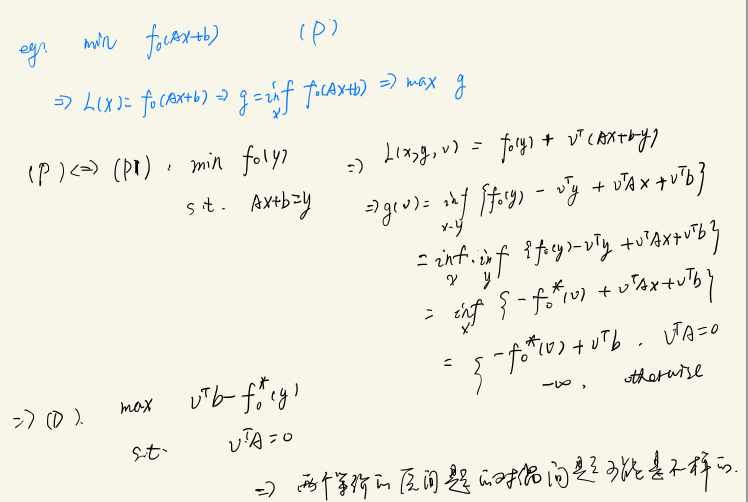 eg: min f₀(Ax+b) (P)
⇒ L(x) = f₀(Ax+b) ⇒ g = inf_x f₀(Ax+b) ⇒ max g
(P) ⇔ (P1): min f₀(y) ⇒ L(x,y,υ) = f₀(y) + υᵀ(Ax+b-y)
s.t. Ax+b=y ⇒ g(υ) = inf_{x,y} {f₀(y) - υᵀy + υᵀAx + υᵀb}
= inf_x inf_y {f₀(y) - υᵀy + υᵀAx + υᵀb}
= inf_x {-f₀*(υ) + υᵀAx + υᵀb}
= { -f₀*(υ) + υᵀb . υᵀA=0
-∞ . otherwise
⇒ (D). max υᵀb - f₀*(y)
s.t. υᵀA=0
⇒ 两个等价的原问题的对偶问题可能是不一样的.